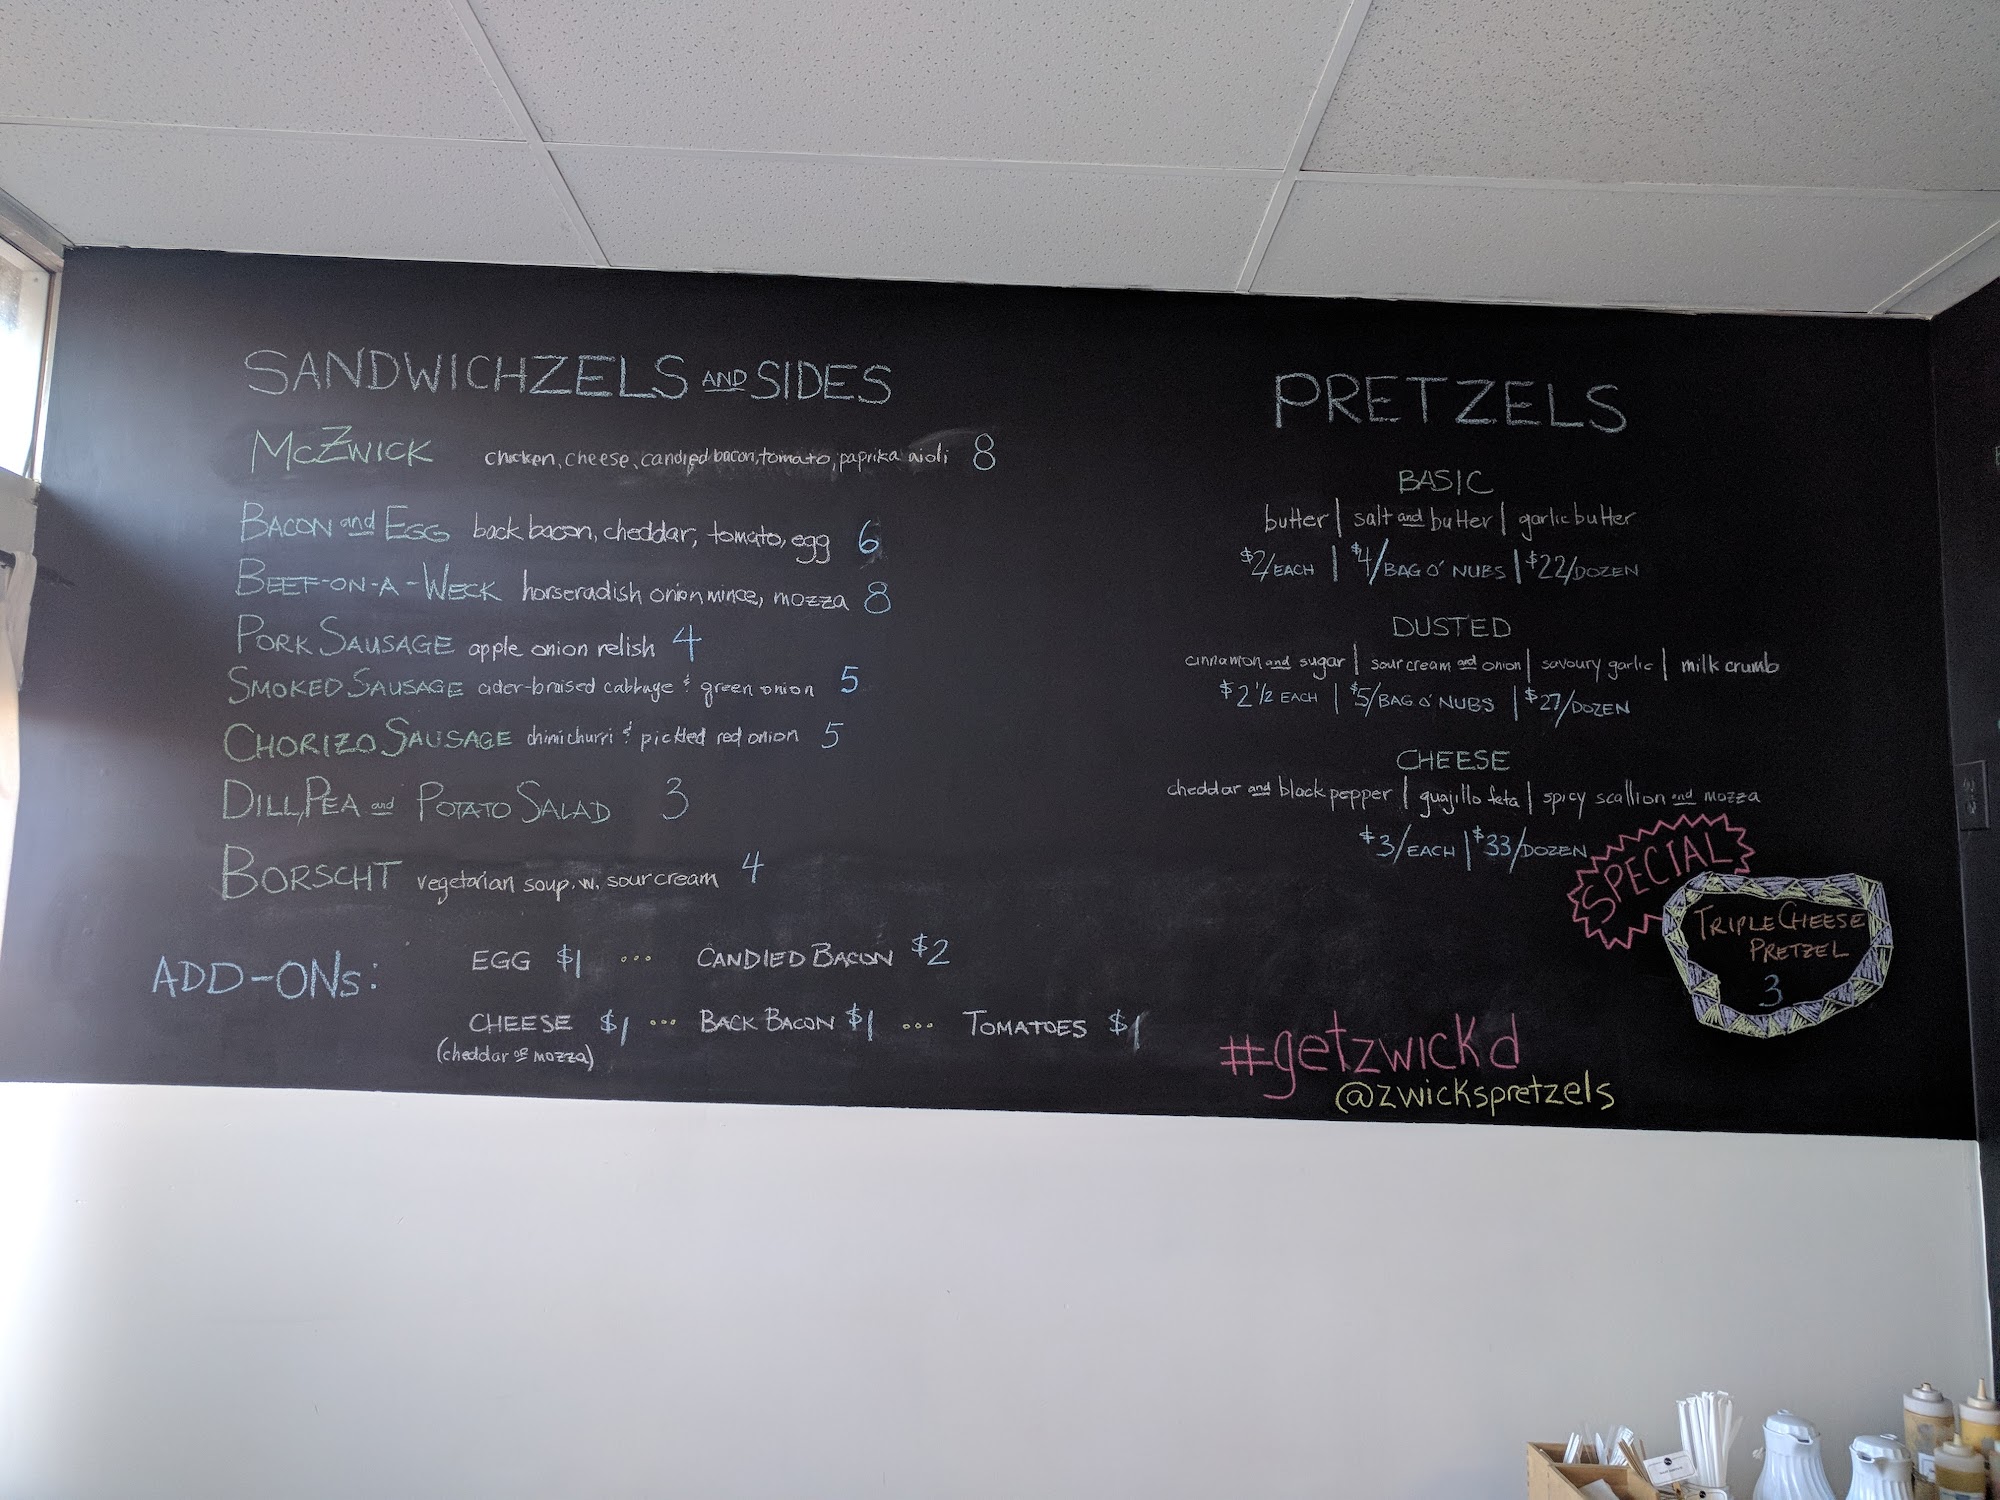 SANDWICHZELS AND SIDES
McZWICK chicken, cheese, candied bacon, tomato, paprika aioli 8
BACON and EGG back bacon, cheddar, tomato, egg 6
BEEF-ON-A-WECK horseradish onion mince, mozza 8
PORK SAUSAGE apple onion relish 4
SMOKED SAUSAGE cider-braised cabbage & green onion 5
CHORIZO SAUSAGE chimichurri & pickled red onion 5
DILL, PEA and POTATO SALAD 3
BORSCHT vegetarian soup. w. sour cream 4
ADD-ONs:
EGG $1 ... CANDIED BACON $2
CHEESE $1 ... BACK BACON $1 ... TOMATOES $1
(cheddar or mozza)
PRETZELS
BASIC
butter | salt and butter | garlic butter
$2/EACH | $4/BAG O' NUBS | $22/DOZEN
DUSTED
cinnamon and sugar | sour cream and onion | savoury garlic | milk crumb
$2 1/2 EACH | $5/BAG O' NUBS | $27/DOZEN
CHEESE
cheddar and black pepper | guajillo feta | spicy scallion and mozza
$3/EACH | $33/DOZEN
SPECIAL
TRIPLE CHEESE
PRETZEL
3
#getzwickd
@zwickspretzels